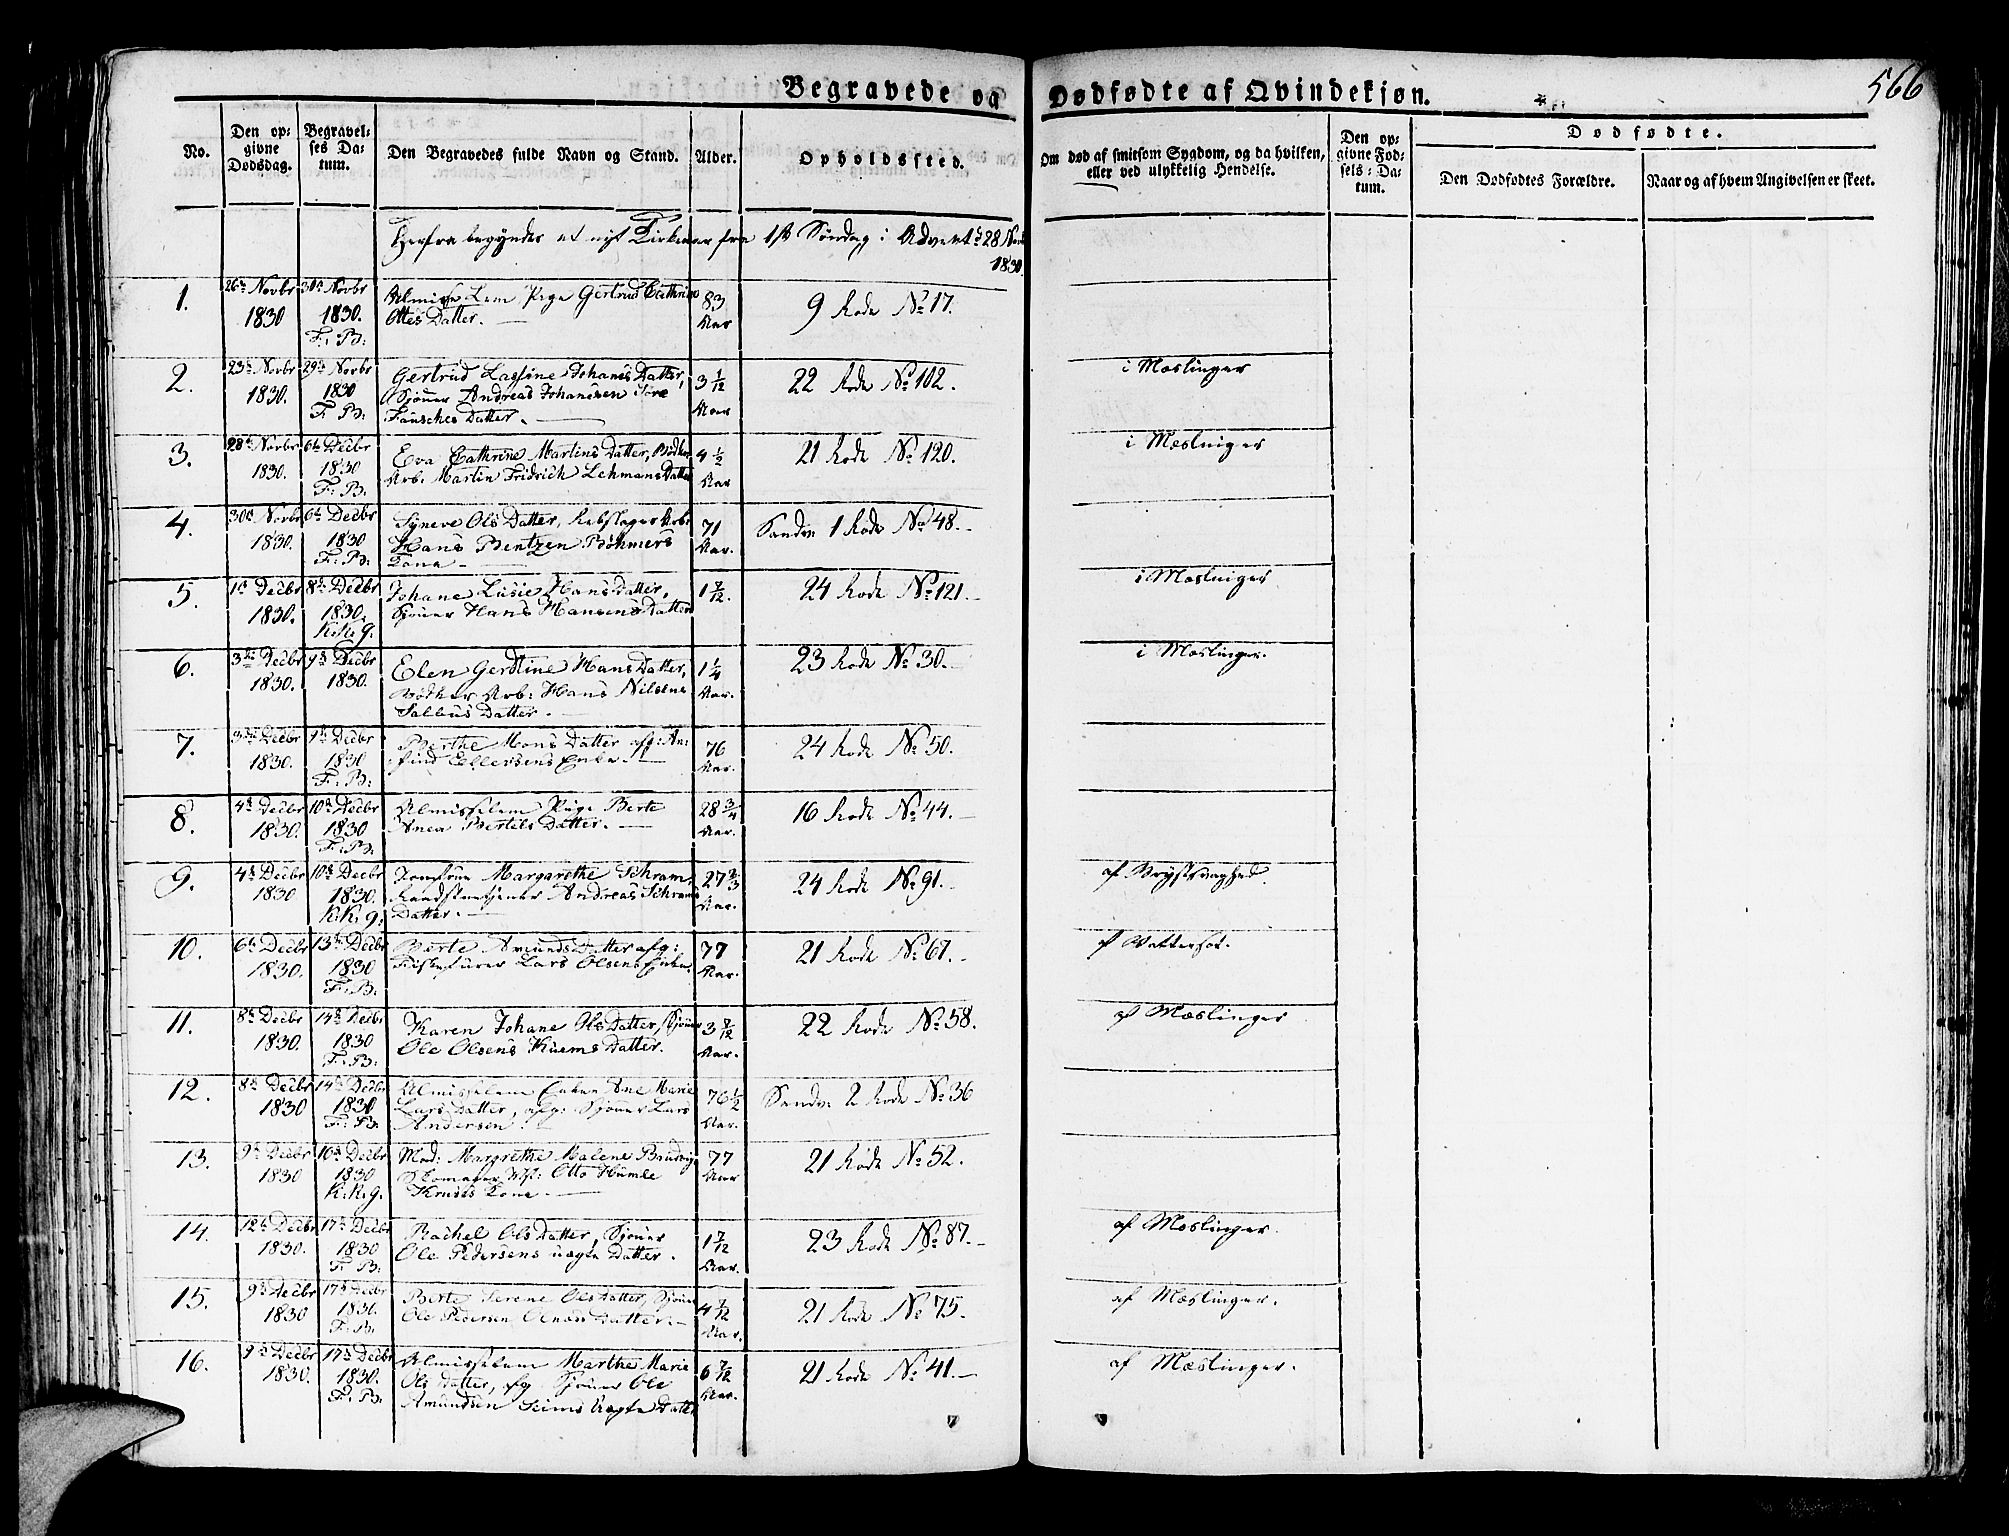 566
Begravede og Dødfødte af Qvindekjøn.
No.
Den opgivne Dødsdag.
Begravelses Datum.
Den Begravedes fulde Navn og Stand.
Alder.
Opholdssted.
Om død af smitsom Sygdom, og da hvilken, eller ved ulykkelig Hendelse.
Den opgivne Fødsels-Datum.
Dødfødte.
Den Dødfødtes Forældre.
Naar og af hvem Angivelsen er skeet.
Herfra begyndes et nyt Kirkeaar fra 1ste Søndag i Advent d 28 Novbr
1830.
1. 26de Novbr 30te Novbr Almisse Lem Pige Gertrud Cathrine 83 9 Rode No 17.
1830 1830. Ottes Datter. Aar
F. B.
2. 23de Novbr 29de Novbr Gertrud Lassine Johanes Datter, 3 1/12 22 Rode No 102. i Mæslinger
1830. 1830 Sjouer Andreas Johanesen Tore
F. B. Fausches Datter. Aar
3. 28de Novbr 6te Decbr Eva Cathrine Martins Datter, Bødker 4 1/2 21 Rode No 120. i Mæslinger
1830. 1830 Arb. Martin Fridrich Lehmans Datter Aar
F. B.
4. 30te Novbr 6te Decbr Syneve Ols Datter, Rebslager Arb. 71 Sandv. 1 Rode No 48.
1830. 1830 Hans Bentzen Bøhmers Aar.
F. B. Kone
5. 1te Decbr 8de Decbr Johane Lusie Hans Datter, 1 7/12. 24 Rode No 121. i Mæslinger
1830. 1830. Sjouer Hans Hansens Datter
K. K. g.
6. 3die Decbr 9de Decbr Elen Gerdtine Hans Datter, 1 1/4 23 Rode No 30. i Mæslinger.
1830. 1830. Bødker Arb: Hans Nilsens Aar.
Salhus Datter.
7. 3die Decbr 9de Decbr Berthe Mons Datter afg: An: 76 24 Rode No 50.
1830. 1830 find Ellersens Enke. Aar.
F. B.
8. 4de Decbr 10de Decbr Almisselem Pige Berte 28 3/4 16 Rode No 44.
1830. 1830 Anea Bertels Datter. Aar.
F. B.
9. 4de Decbr 10de Decbr Jomfrue Margarethe Schram, 27 2/3 24 Rode No 91. af Brystsvaghed.
1830 1830. Andreas Schrams Aar.
K. K. g. Datter.
10. 6te Decbr 13de Decbr Berte Amunds Datter afg: 77 21 Rode No 67. af Vattersot.
1830. 1830 Fiskefører Lars Olsens Enke. Aar.
F. B.
11. 8de Decbr 14de Decbr Karen Johane Ols Datter, Sjouer 3 7/12 22 Rode No 58. af Mæslinger
1830. 1830 Ole Olsens Kuems Datter. Aar.
F. B.
12. 8de Decbr 14de Decbr Almisselem Enken Ane Marie 76 1/2 Sandv. 2 Rode No 36
1830 1830 Lars Datter, afg: Sjouer Lars
F. B. Andersen. Aar.
13. 9de Decbr 16de Decbr Mad: Margrethe Malene Brudvig 77 21 Rode No 52.
1830 1830 Skomager Otto Humle Aar
K. K. g. Knuds Kone.
14. 12te Decbr 17de Decbr Rachel Ols Datter, Sjouer 1 7/12 23 Rode No 87. af Mæslinger.
1830. 1830 Ole Pedersens uægte Datter. Aar.
F. B.
15. 9de Decbr 17de Decbr Berte Serene Ols Datter, Sjouer 4 7/12 21 Rode No 75. af Mæslinger.
1830 1830. Ole Pedersen Datter.
F. B. Aar.
16. 9de Decbr 17de Decbr Almisselem Marthe Marie 6 7/12 21 Rode No 41. af Mæslinger.
1830. 1830. Ols Datter, afg. Sjouer Ole Aar.
F. B. Amundsen Seims Uægte Datter